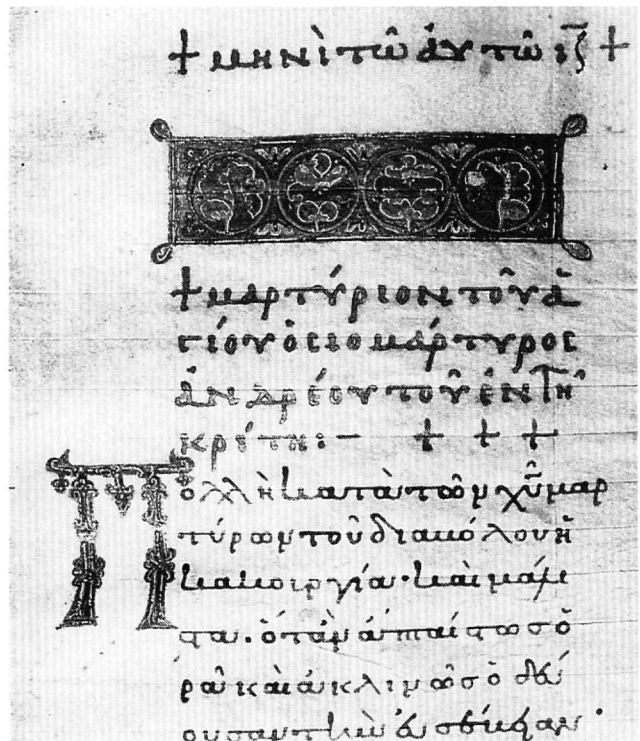 + μηνὶ τῶ ἀυτῶ ιζ +
+ μαρτύριον τοῦ ἁ
γίου ὁσιομάρτυρος
ἀνδρέου τοῦ ἐν τῆ
κρίτη:— + + +
Πολλὴ κατὰ τῶν χῦ μαρ
τύρων τοῦ διαβόλου ἡ
κακουργία· καὶ μάλι
στα. ὅταν ἀπταίστως ὁ
ρᾶ καὶ ἀκλινῶς ὁδεύ
ουσαν τὴν